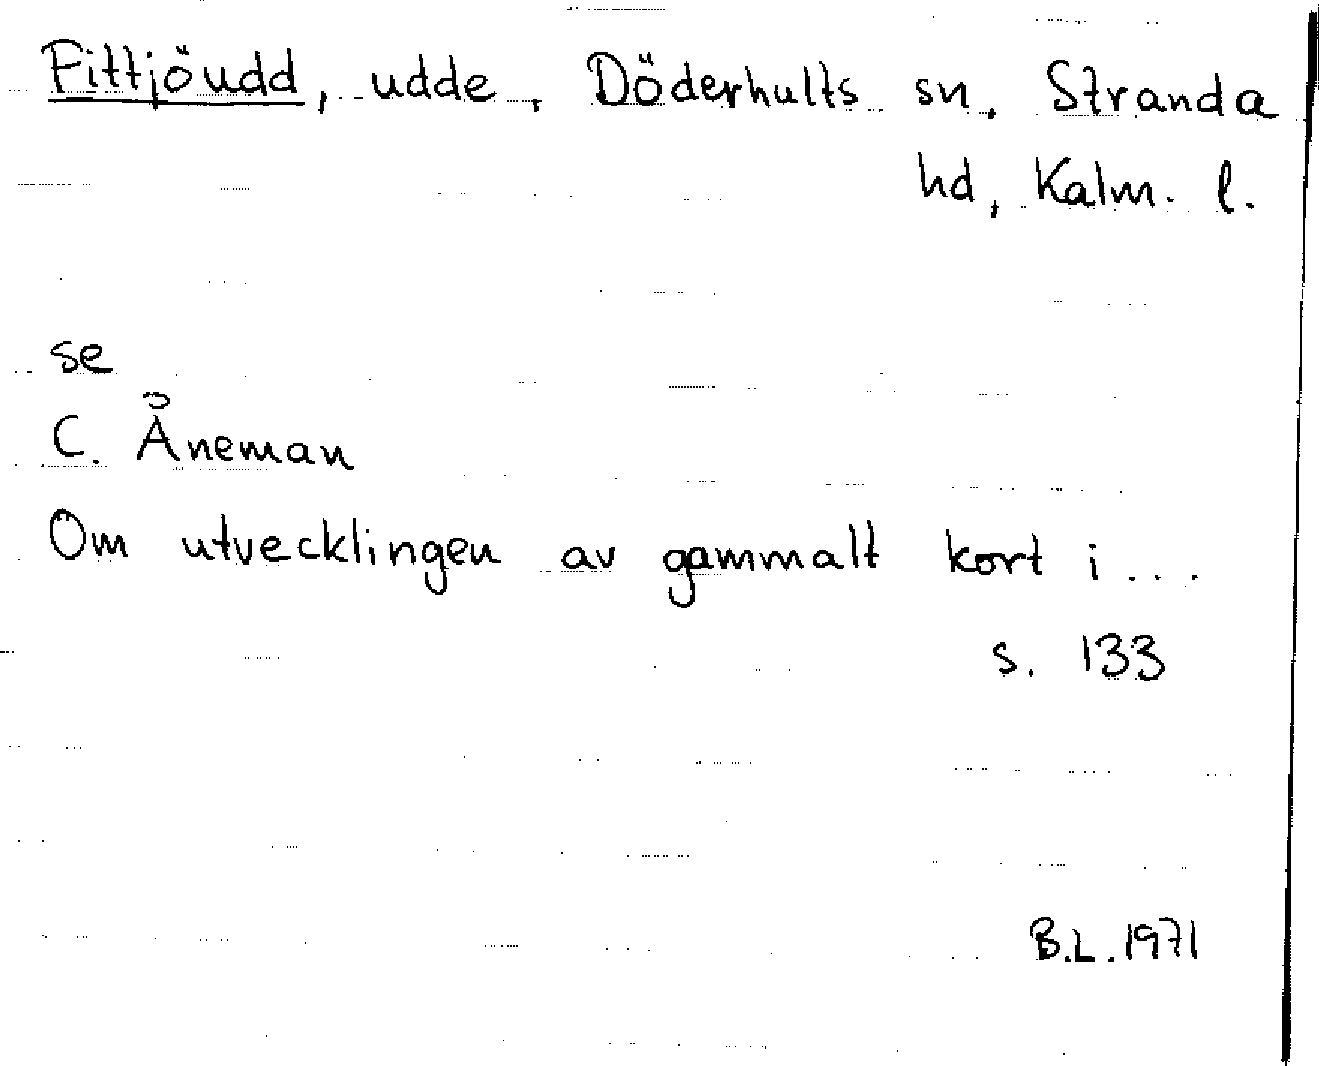 Fittjöudd, udde, Döderhults sn, Stranda
hd, Kalm. l.
se
C. Åneman
Om utvecklingen av gammalt kort i...
s. 133
B.L. 1971